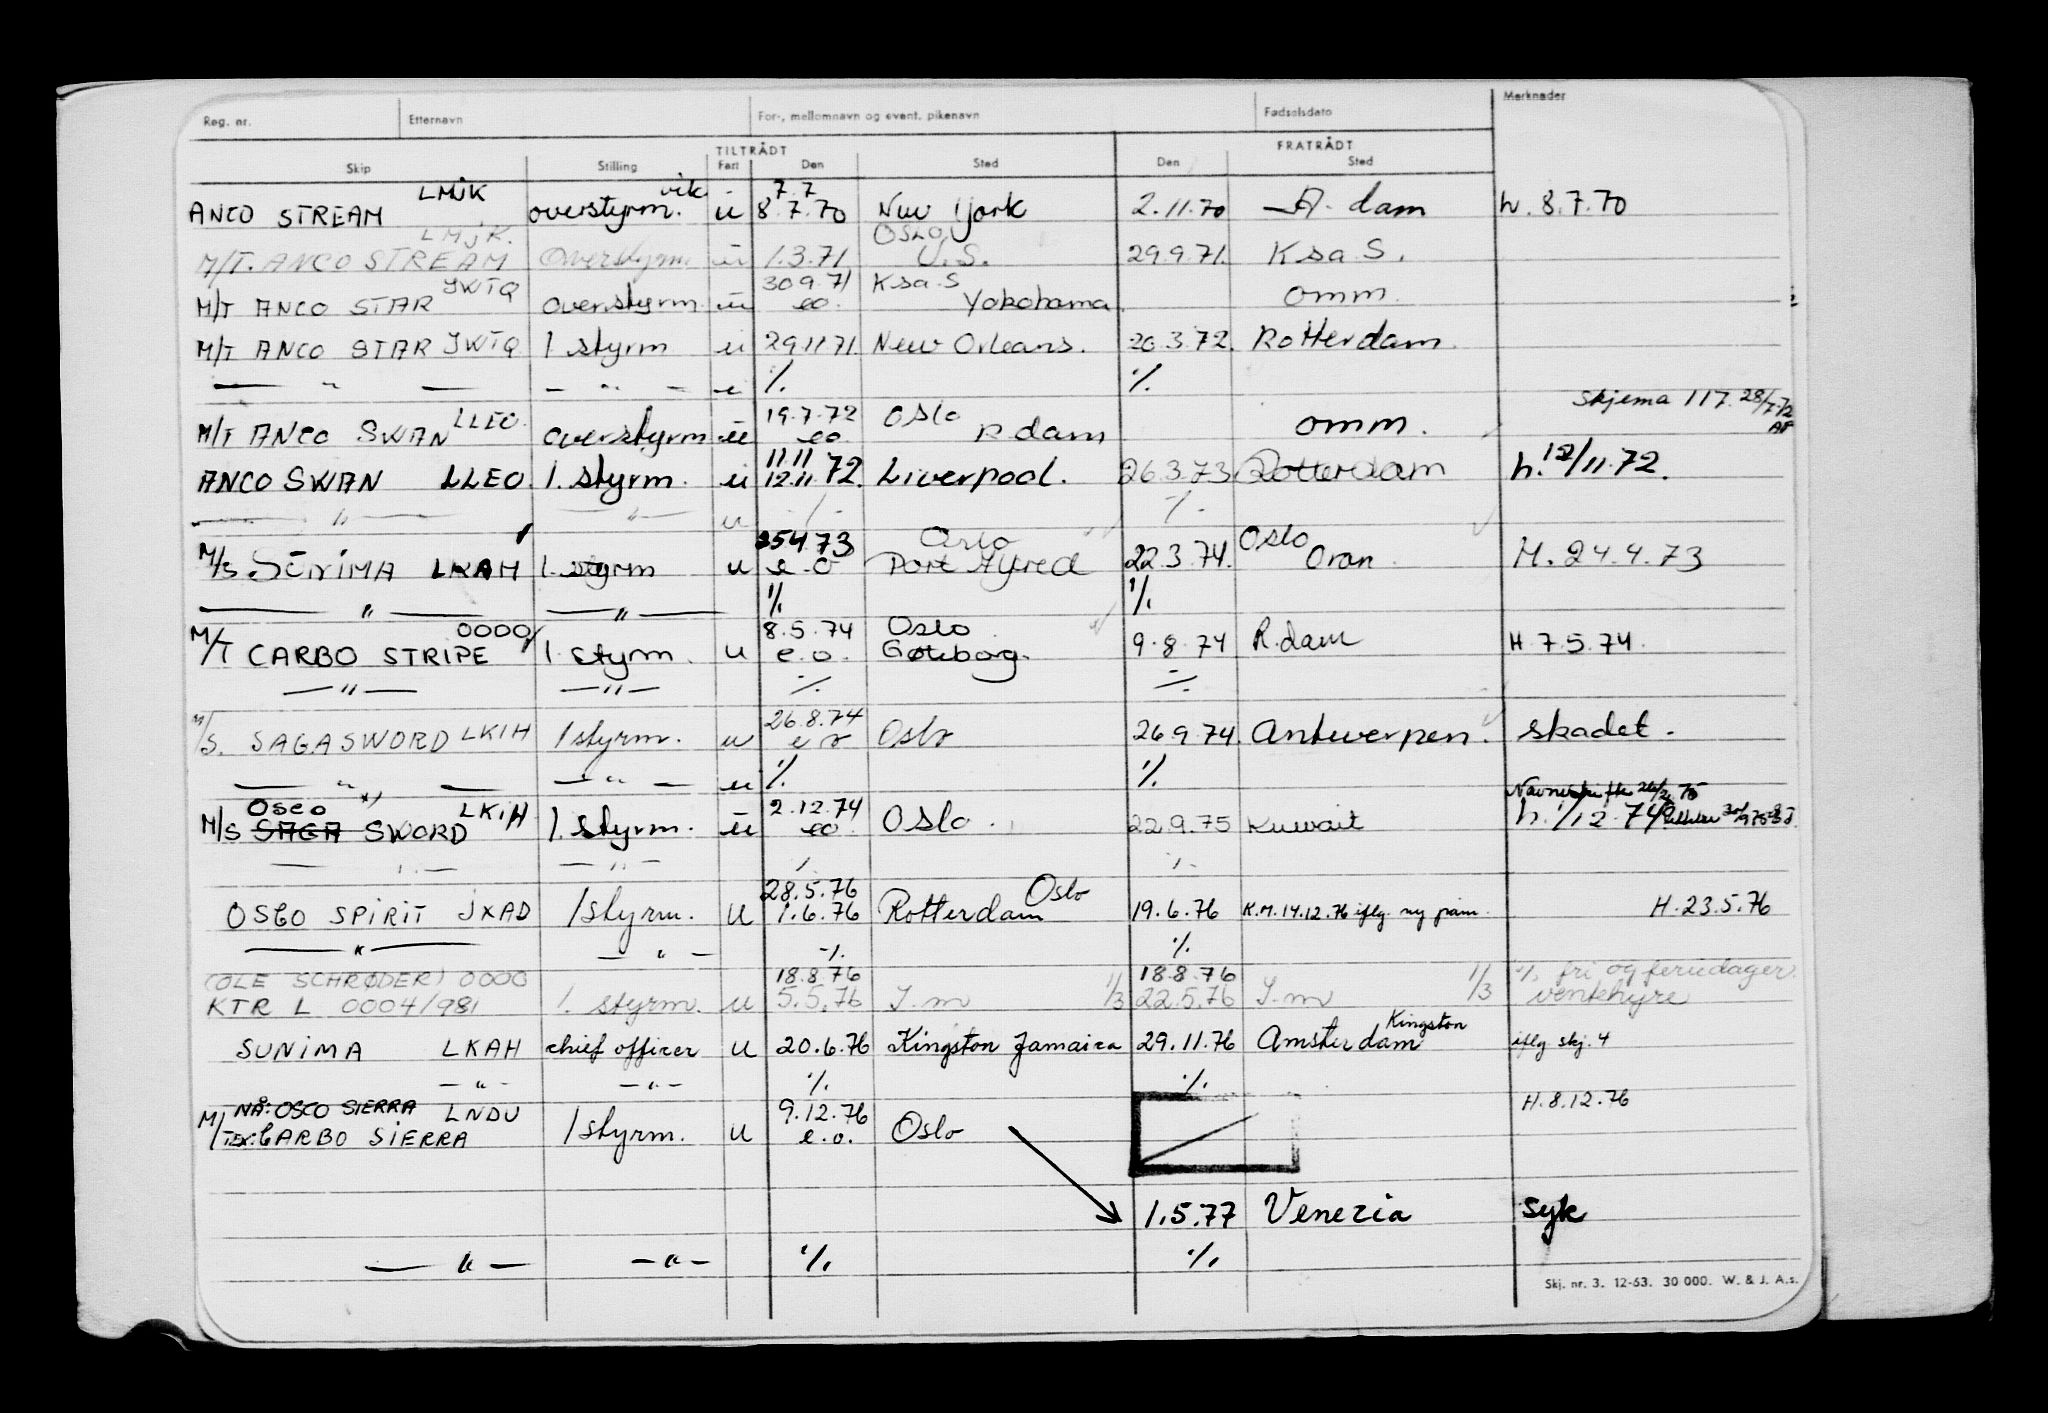 Reg. nr. Etternavn For-, mellomnavn og event. pikenavn Fødselsdato Merknader
TILTRÅDT FRATRÅDT
Skip Stilling Fart Den Sted Den Sted
LMJK vik. 7.7
ANCO STREAM overstyrm. u 8.7.70 New York 2.11.70 A-dam h. 8.7.70
LMJK. OSLO
M/T. ANCO STREAM overstyrm. u 1.3.71 U.S. 29.9.71. K sa S.
JWTQ 30.9.71 K sa S
M/T ANCO STAR overstyrm u eo. Yokohama omm.
M/T ANCO STAR JWTQ 1 styrm u 29.11.71. New Orleans. 20.3.72. Rotterdam.
— " — — " — u %. %.
Skjema 117. 28/7-72
LLEO. 19.7.72 Oslo
M/T ANCO SWAN overstyrm u eo. R.dam omm.
11.11
ANCO SWAN LLEO 1. styrm. u 12.11.72. Liverpool. 26.3.73 Rotterdam h. 12/11.72.
— " — — " — u %. %.
25.4.73 Oslo Oslo
M/S SUNIMA LKAH 1. styrm u e.o Port Alfred 22.3.74. Oran H. 24.4.73
— " — — " — %. %.
0000 8.5.74 Oslo
M/T CARBO STRIPE 1. styrm. u e.o. Gøteborg. 9.8.74 R.dam H. 7.5.74.
— " — — " — %. %.
26.8.74
M/S. SAGASWORD LKIH 1 styrm. u e o Oslo 26.9.74. Antwerpen. skadet.
— " — — " — u %. %.
OSCO x) LKIH 2.12.74
M/S SAGA SWORD 1. styrm. u eo. Oslo. 22.9.75 Kuwait h. 1/12.74
— " — — " — %. %.
28.5.76 Oslo
OSCO SPIRIT JXAD 1 styrm. u 1.6.76 Rotterdam 19.6.76 K.M. 14.12.76 iflg. ny påm. H. 23.5.76
— " — — " — %. %.
(OLE SCHRØDER) 0000 18.8.76 18.8.76 %. fri og feriedager.
KTR L 0004/981 1. styrm. u 5.5.76 I.m 1/3 22.5.76 I.m 1/3 ventehyre
Kingston
SUNIMA LKAH chief officer u 20.6.76 Kingston Jamaica 29.11.76 Amsterdam iflg skj. 4
— " — — " — %. %.
NÅ: OSCO SIERRA LNDU 9.12.76 H. 8.12.76
M/T EX: CARBO SIERRA 1 styrm. u e.o. Oslo
1.5.77 Venezia syk
— " — — " — %. %.
Skj. nr. 3. 12-63. 30 000. W. & J. A.s.